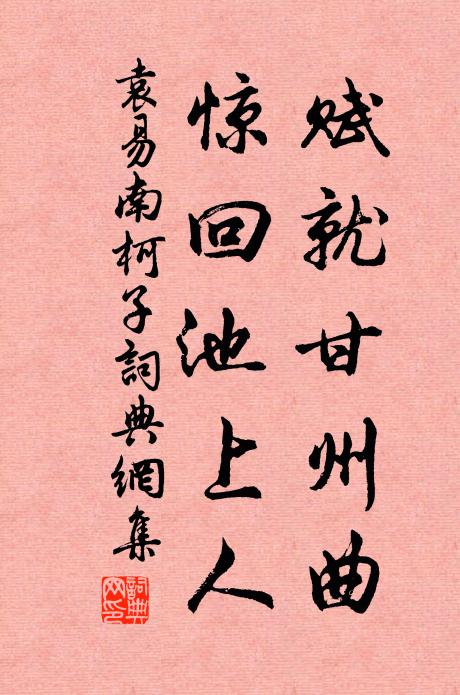 赋就甘州曲
惊回池上人
袁易南柯子詞典網集
詞典網印